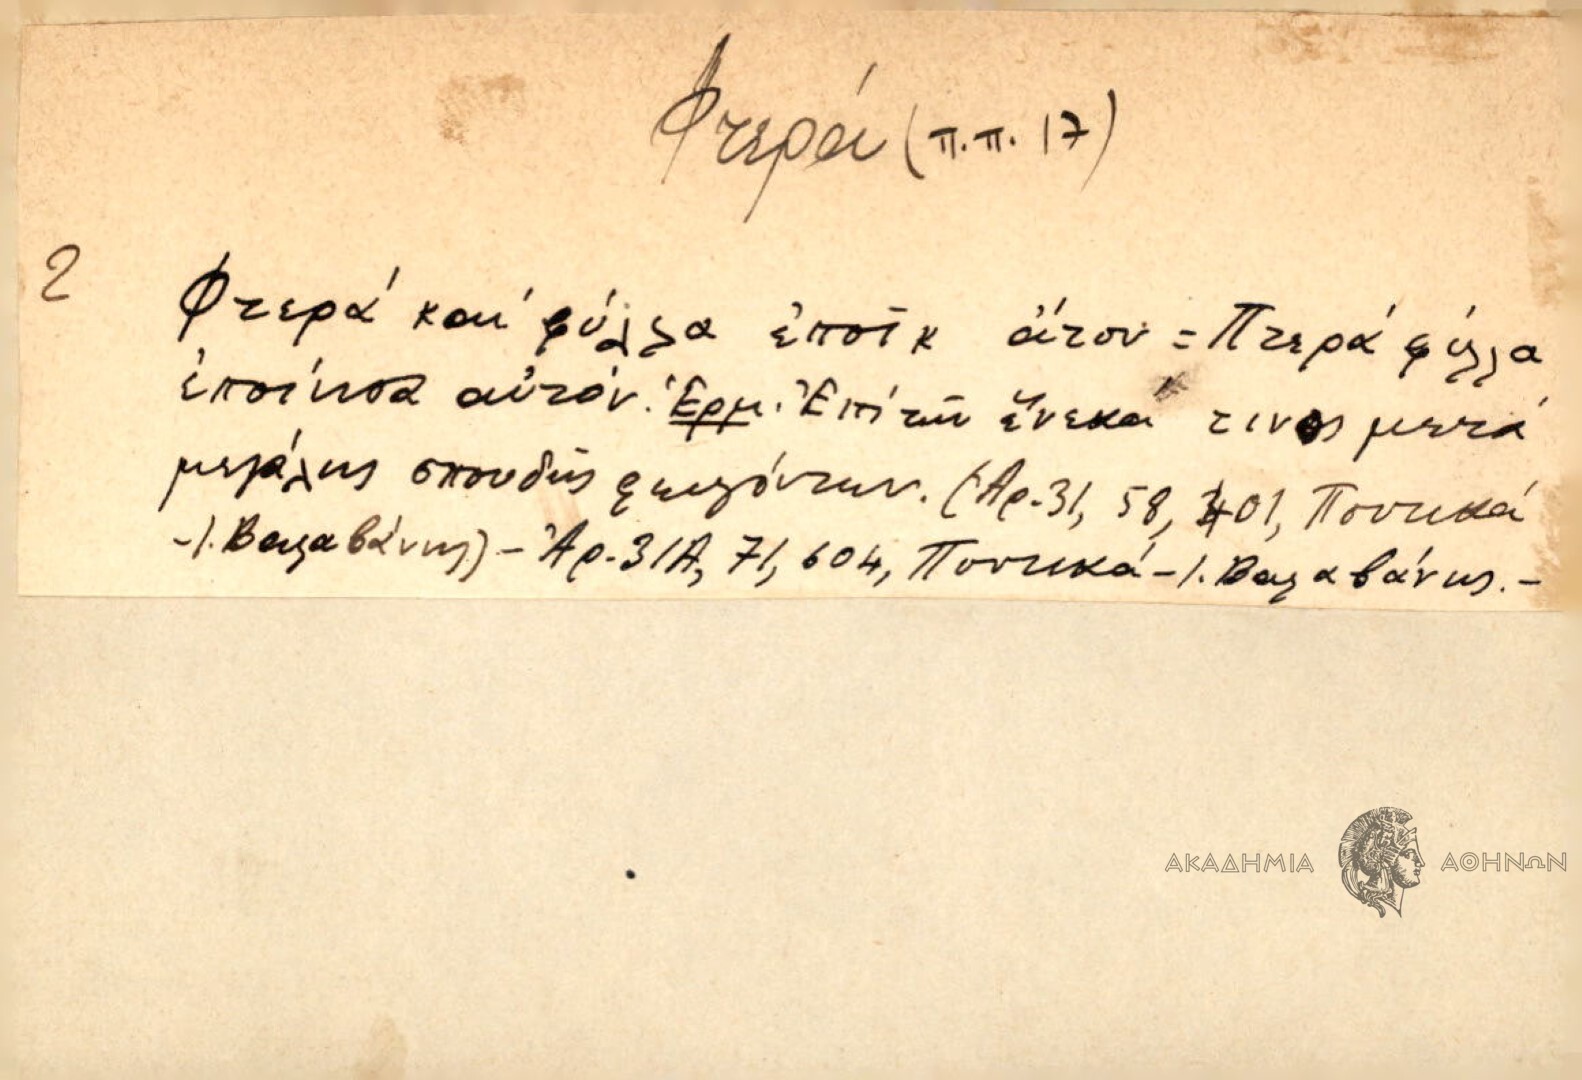 Φτερά (π.π. 17)
2
Φτερά και φύλλα ἐποῖκ άτον = Πτερά φύλλα
ἐποίησα αὐτόν. Ἑρμ. Ἐπί τῶν ἕνεκά τινος μετά
μεγάλης σπουδῆς φευγόντων. (Ἀρ. 31, 58, 401, Ποντικά
- Ι. Βαλαβάνης) - Ἀρ. 31Α, 71, 604, Ποντικά - Ι. Βαλαβάνης. -
ΑΚΑΔΗΜΙΑ ΑΘΗΝΩΝ